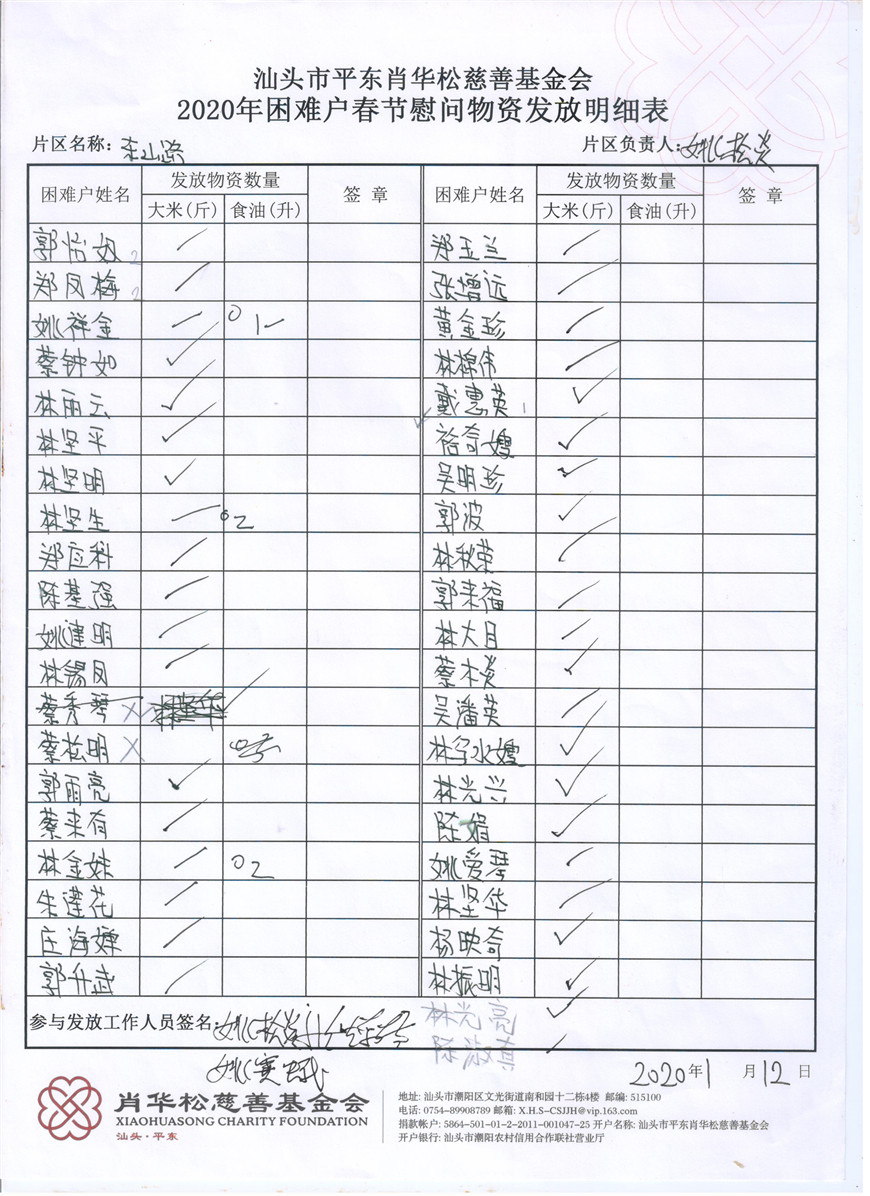 汕头市平东肖华松慈善基金会
2020年困难户春节慰问物资发放明细表
片区名称： 片区负责人：姚松炎
困难户姓名 发放物资数量 签 章 困难户姓名 发放物资数量 签 章
大米(斤) 食油(升) 大米(斤) 食油(升)
郭怡如 2 郑玉兰
郑凤梅 2 张增远
姚祥金 0 1 黄金珍
蔡钟如 林棉伟
林丽云 戴惠英 1
林坚平 奇嫂
林坚明 吴明珍
林坚生 02 郭波
郑应科 林秋荣
陈基强 郭来福
姚建明 林大目
林锡凤 蔡木炎
蔡秀琴 X 吴潘英
蔡松明 X 林 水嫂
郭雨亮 林光兴
蔡来有 陈娟
林金妹 02 姚爱琴
朱莲花 林坚华
庄海婵 杨映奇
郭升武 林振明
参与发放工作人员签名：姚松炎 林光亮
陈淑真
姚
2020年1月12日
肖华松慈善基金会
XIAOHUASONG CHARITY FOUNDATION
汕头·平东
地址: 汕头市潮阳区文光街道南和园十二栋4楼 邮编: 515100
电话: 0754-89908789 邮箱: X.H.S-CSJJH@vip.163.com
捐款帐户: 5864-501-01-2-2011-001047-25 开户名称: 汕头市平东肖华松慈善基金会
开户银行: 汕头市潮阳农村信用合作联社营业厅